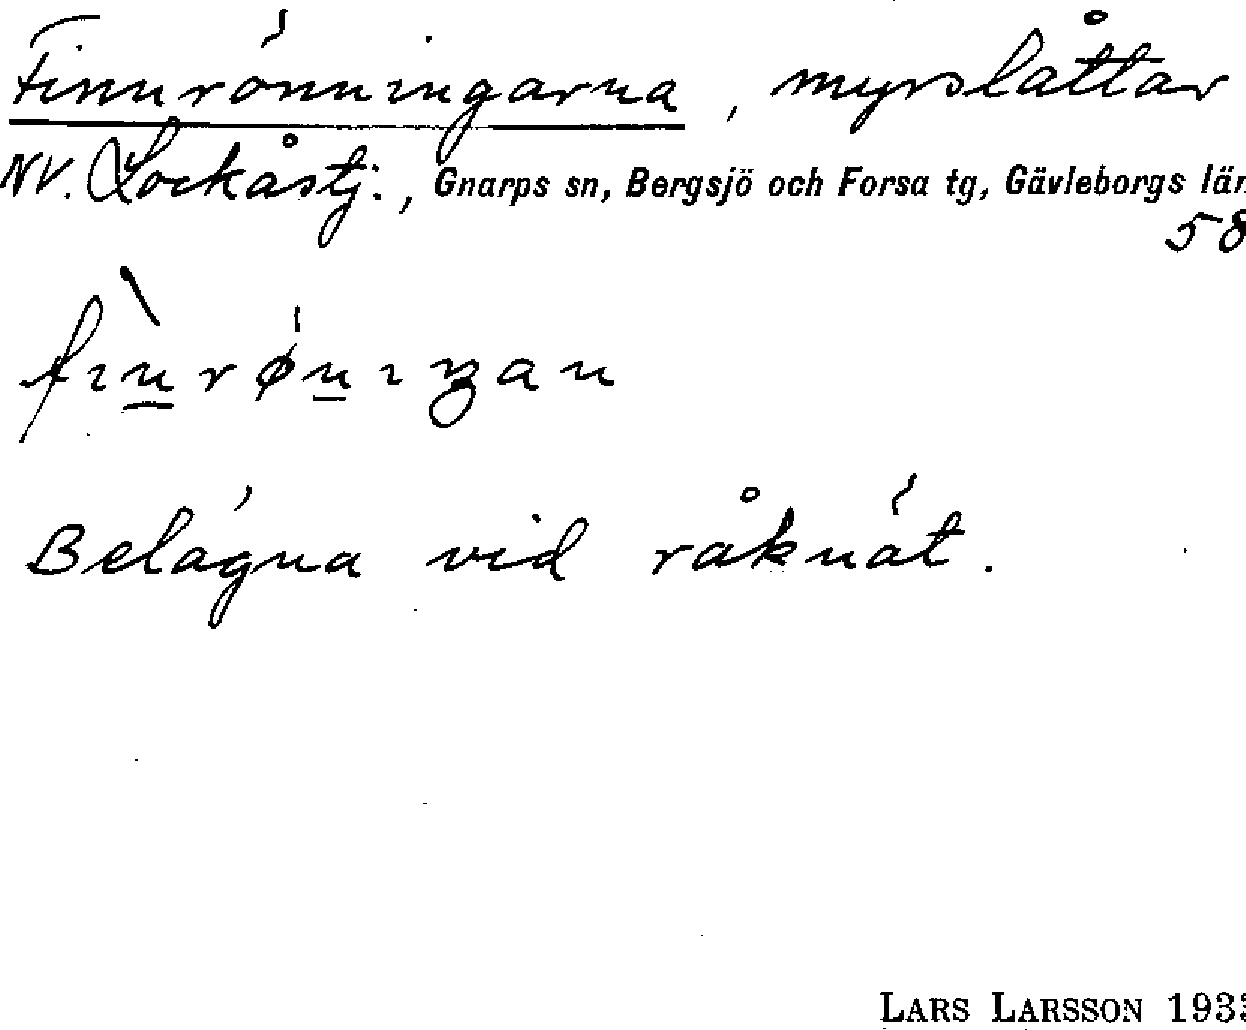 Finnrönningarna, myrslåttar
NV. Lockåstj., Gnarps sn, Bergsjö och Forsa tg, Gävleborgs län
58
Belägna vid råknät.
LARS LARSSON 1933